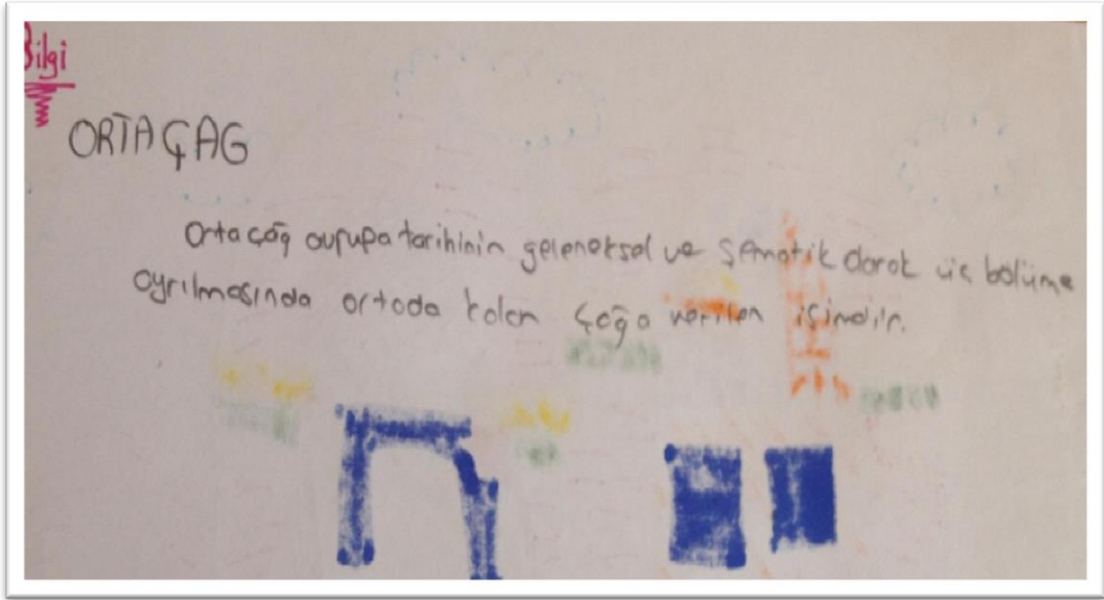 Bilgi
ORTAÇAG
Orta çağ avrupa tarihinin geleneksel ve şematik olarak üç bölüme
ayrılmasında ortada kalan çağa verilen isimdir.